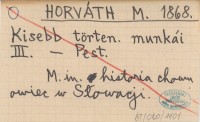 HORVÁTH M. 1868.
Kisebb törten. munkái
III. — Pest.
M. in. historia chowu
owiec w Słowacji.